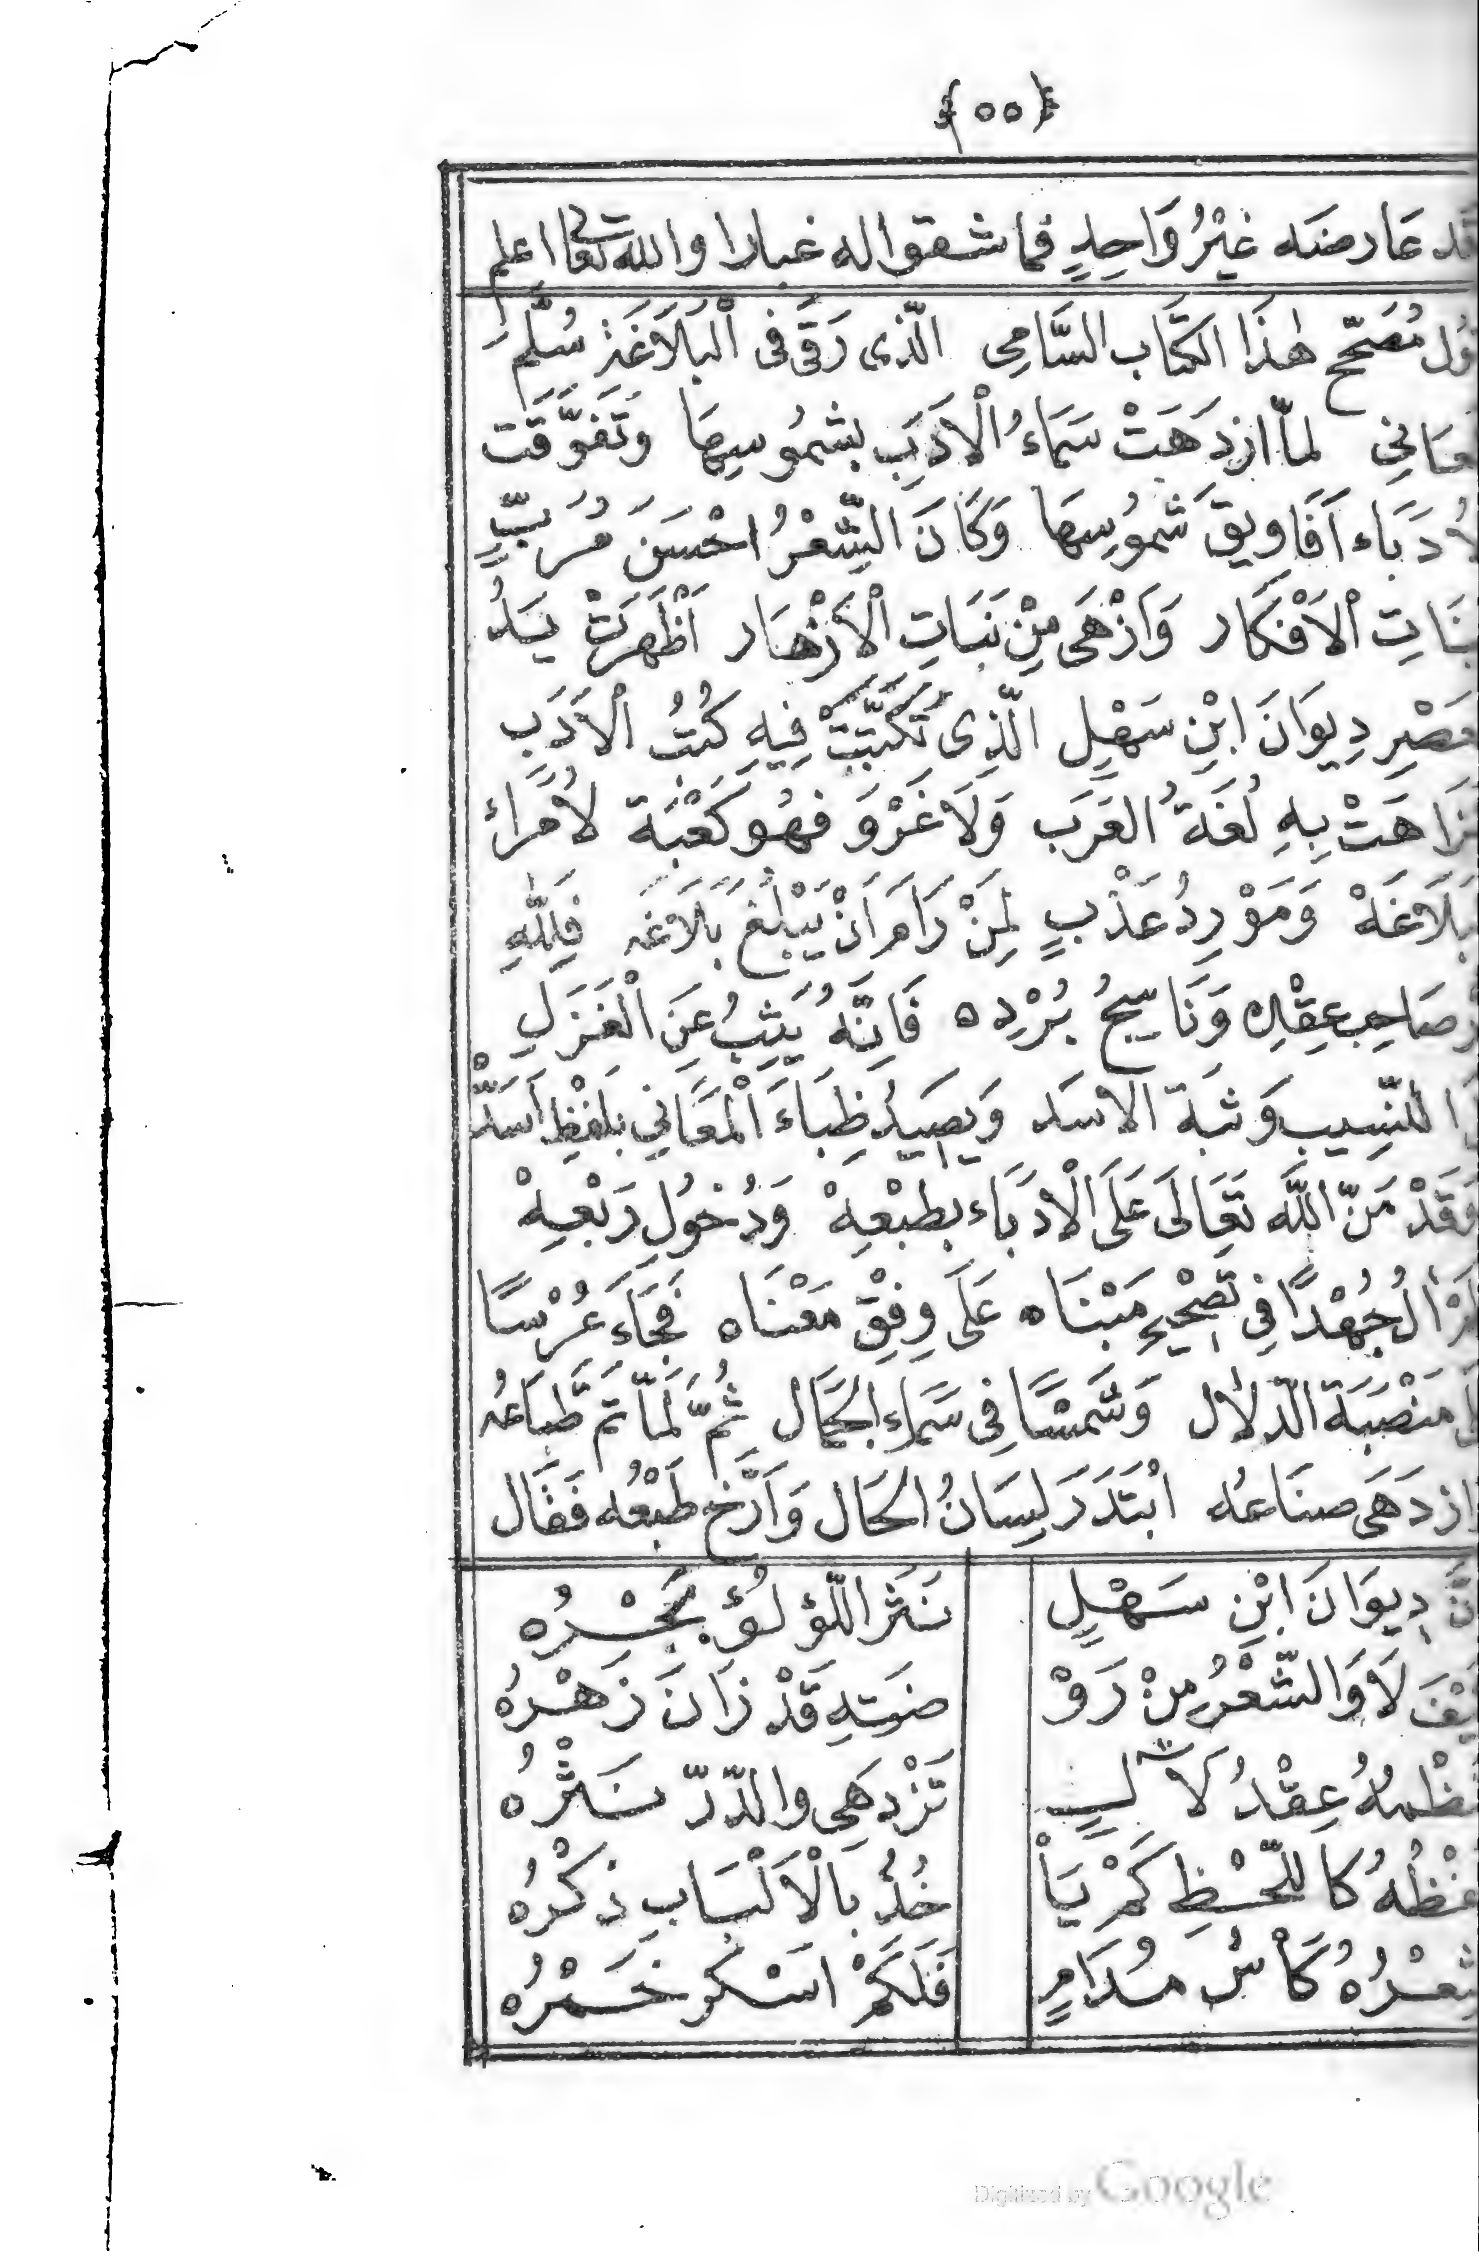 ﴿٥٥﴾
قد عَارضَه غَيْرُ وَاحِدٍ فما شقوا له غبارا والله تعالى اعلم
مُصَحّح هٰذَا الكتَاب السَّامِى الّذى رَقَى فى الْبَلَاغَةِ سُلَّمَ
لمّا ازدَهَتْ سَمَاءُ الْادَبِ بشمُوسِهَا وتَفَوَّقَت
اَفَاوِيقَ شَمُوسِهَا وَكَانَ الشِّعْرُ احْسَنَ مُرَبّىٍ
الْاَفْكَار وَاَزْهَى مِنْ نَبَاتِ الْاَزْهَار اَظْهَرَتْ يَدُ
دِيوَانَ ابْنِ سَهْلٍ الّذِى تَكَتَّبَتْ فِيهِ كُتُبُ الْاَدَبِ
بِهِ لُغَةُ العَرَب وَلَا غَرْوَ فهُو كَعْبَة لاُمَرَاءِ
وَمَوْرِدُ عَذْبٍ لِمَنْ رَامَ اَنْ يَبْلُغَ بَلَاغَه فَلِلّٰهِ
صَاحِب عِقْدِه وَنَاسِجُ بُرْدِه فَاِنَّهُ يَثِبُ عَنِ الْغَزَلِ
للنّسِيب وَثبَةَ الاسَد وَيصِيدُ ظِبَاءَ الْمَعَانِي بلفظٍ اَسَدّ
فَقَدْ مَنّ اللَّه تَعَالَى عَلَى الْادَبَاء بطبْعِهْ وَدُخُولِ رَبْعِهْ
جُهْدًا فِى تصْحِيحِ مَبْنَاه عَلَى وِفْقِ مَعْنَاه فَجَاءَ عُرْسًا
مَنْصَبَة الدّلَال وَشَمْسًا فِى سَمَاءِ الجَمَال ثُمَّ لَمَّا تَمَّ طبَاعُه
ازدَهَى صنَاعُه ابْتَدَرَ لِسَانُ الحَال وَاَرَّخ طَبْعُه فقَال
دِيوَانَ ابْنِ سَهْلٍ نَثر اللّؤلُؤ بَحْرُه
لَا وَالشّعْرُ مِنْ رَوْ ضَتِهِ قَدْ زَانَ زَهْرُهُ
نَظْمُهُ عِقْدُ لَاۤلٍ تَزْدَهِى والدّرّ نَثْرُه
لَفْظُهُ كاللّحْظِ كَمْ يَأْ خُذُ بَالْاَلْبَابِ ذِكْرُه
شِعْرُهُ كَأْسُ مُدَامٍ فَلَكَمْ اسْكر خَمْرُه
Digitized by Google